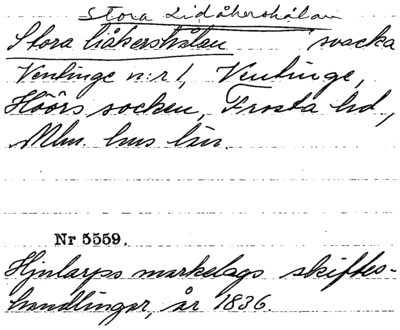 Stora Lidåkershålan
Stora Liåkershålan svacka
Ventinge n:r 1, Ventinge,
Höörs socken, Frosta hd,
Mlm. hus län.
Nr 5559.
Hjularps markelags skiftes-
handlingar, år 1836.